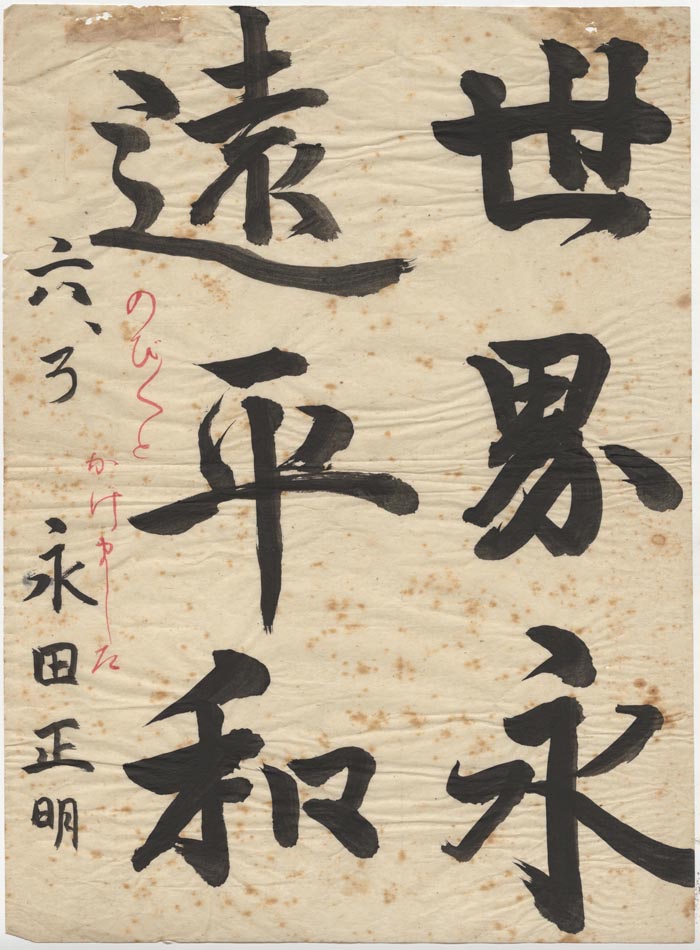 世界永
遠平和
のび〱と
かけました
六、ろ
永田正明